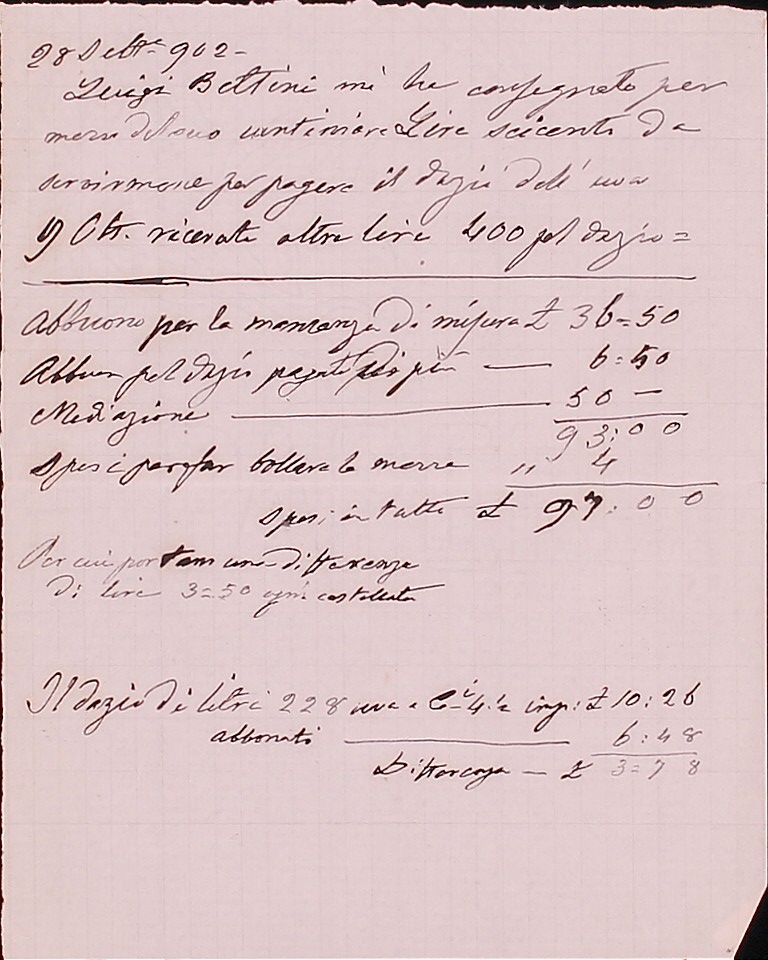 28 Sebtre 902-
Luigi Bettini mi ha consegnato per
mezzo del suo cantiniere Lire seicento da
servirmene per pagare il dazio dell' uva
9 Ott. ricevute altre lire 400 pel dazio =
Abbuono per la mancanza di misura £ 36=50
Abbuon pel dazio pagato di più — 6:50
Mediazione — 50 —
93:00
Spesi per far bollare la 4
Spesi in tutto £ 97:00
Per cui portam una differenza
di lire 3=50 ogni castellata
Il dazio di litri 228 uva a imp: £ 10:26
abbonati — 6:48
Differenza — £ 3=78